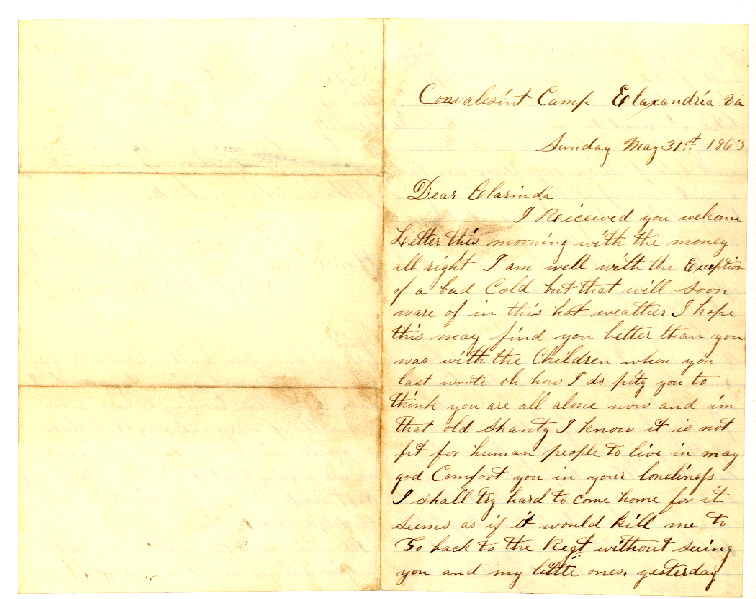 Convalesint Camp Elaxandria va
Sunday May 31st 1863
Dear Clarinda
I Reiceived you welcom
Letter this morning with the money
all right I am well with the Exception
of a bad Cold but that will soon
ware of in this hot weather I hope
this may find you better than you
was with the Children when you
last wrote oh how I do pity you to
think you are all alone now and in
that old shanty I know it is not
fit for human people to live in may
god Comfort you in your loneliness
I shall try hard to come home for it
seems as if it would kill me to
Go back to the Regt without seeing
you and my little ones. yesterday